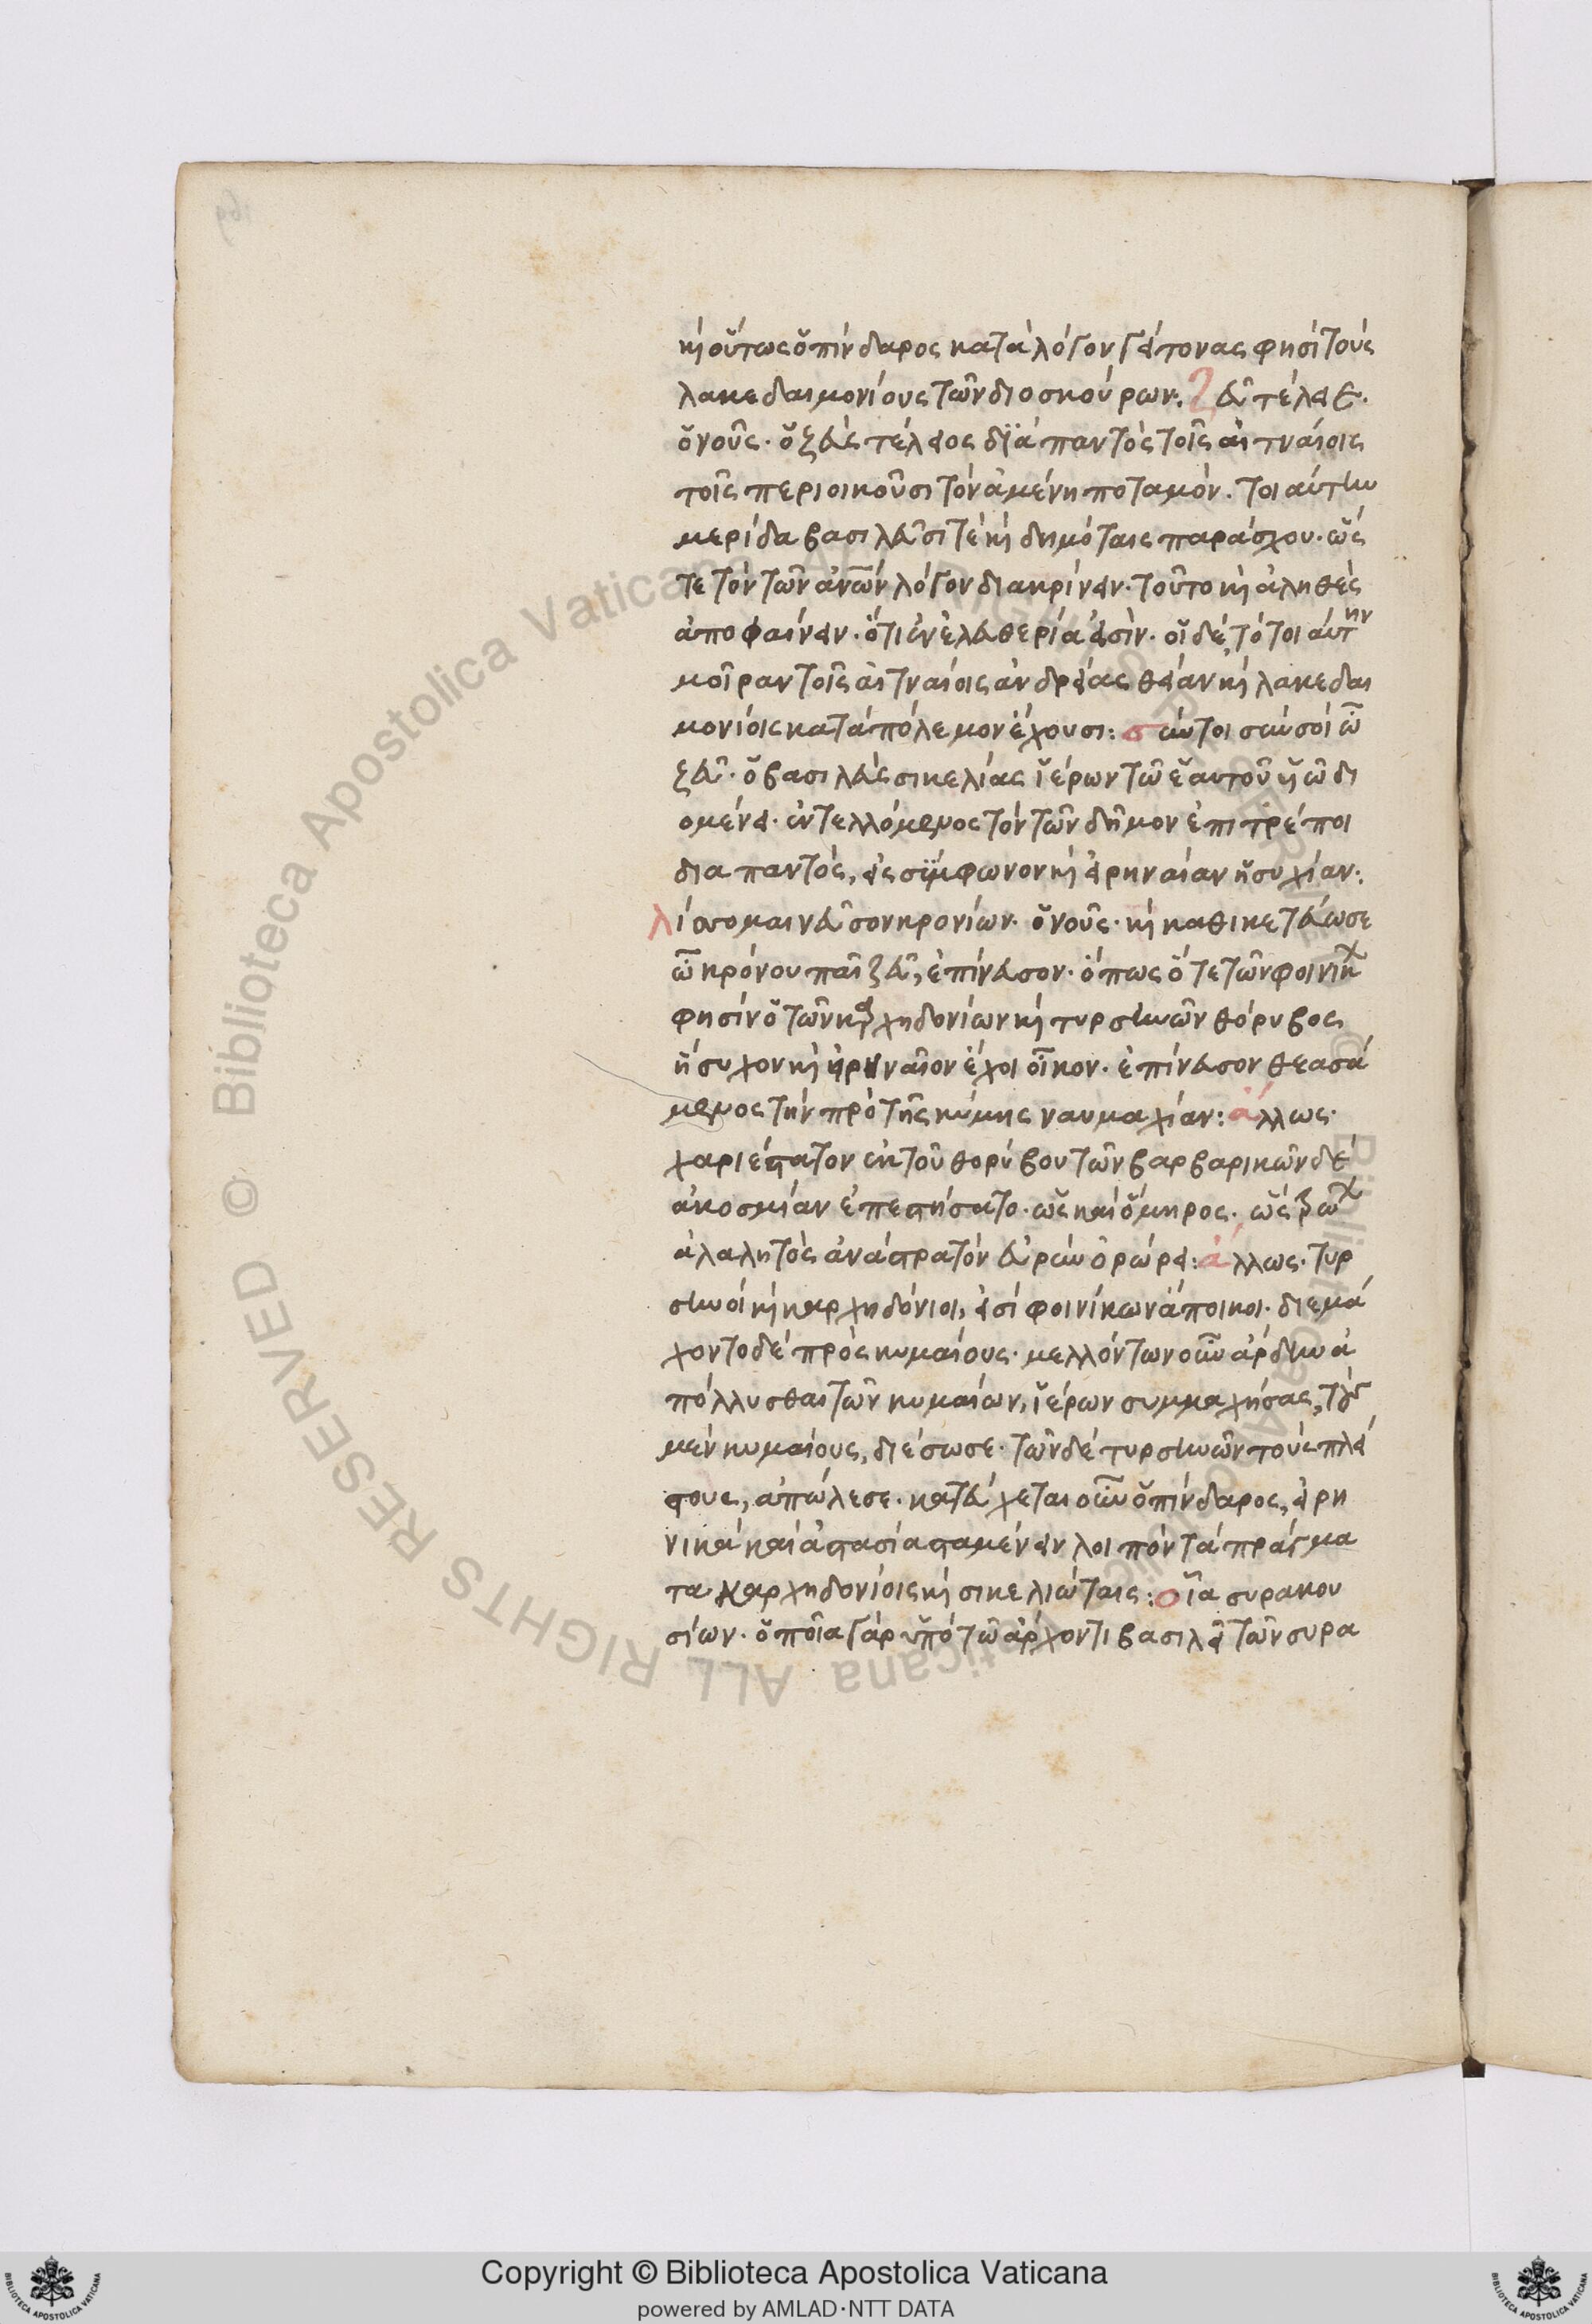 καὶ οὕτως ὁ πίνδαρος κατὰ λόγον γείτονας φησὶ τοὺς
λακεδαιμονίους τῶν διοσκούρων: Ζεῦ τέλει ε.
ὁ νοῦς. ὁ ζεὺς τέλειος διὰ παντὸς τοῖς αἰτναίοις
τοῖς περιοικοῦσι τὸν ἀμένη ποταμόν. τοιαύτην
μερίδα βασιλεῦσί τε καὶ δημόταις παράσχου. ὥς
τε τὸν τῶν ἀνων λόγον διακρίνειν. τοῦτο καὶ ἀληθὲς
ἀποφαίνειν. ὅτι ἐν ἐλευθερία εἰσίν. οἱ δὲ, τὸ τοιαύτην
μοῖραν τοῖς αἰτναίοις ἀνδρείας θείαν καὶ λακεδαι
μονίοις κατὰ πόλεμον ἔχουσι: σύν τοι σὺν σοὶ ὦ
ζεῦ. ὁ βασιλεὺς σικελίας ἱέρων τῶ ἑαυτοῦ υἱῶ δι
ομένει. ἐντελλόμενος τὸν τῶν δῆμον ἐπιτρέποι
διαπαντός, εἰς σύμφωνον καὶ εἰρηναίαν ἡσυχίαν:
λίσσομαι νεῦσον κρονίων. ὁ νοῦς. καὶ καθικετεύω σε
ὦ κρόνου παῖ ζεῦ, ἐπίνευσον. ὅπως ὅ τε τῶν φοινίκ
φησὶν ὁ τῶν καρχηδονίων καὶ τυρσηνῶν θόρυβος
ἥσυχον καὶ εἰρηναῖον ἔχοι οἶκον. ἐπίνευσον θεασά
μενος τὴν πρὸ τῆς κύμης ναυμαχίαν: ἄλλως.
χαριέστατον ἐκ τοῦ θορύβου τῶν βαρβαρικῶν δὲ
ἀκοσμίαν ἐπεστήσατο. ὡς καὶ ὅμηρος. ὣς τρώ
ἀλαλητὸς ἀνὰ στρατὸν εὐρὺν ὀρώρει: ἄλλως. τυρ
σηνοὶ καὶ καρχηδόνιοι, εἰσὶ φοινίκων ἄποικοι. διεμά
χοντο δὲ πρὸς κυμαίους. μελλόντων οὖν ἄρδην ἀ
πόλλυσθαι τῶν κυμαίων, ἱέρων συμμαχήσας, τοὺς
μὲν κυμαίους, διέσωσε. τῶν δὲ τυρσηνῶν τοὺς πλεί
στους, ἀπώλεσε. κατεύχεται οὖν ὁ πίνδαρος, εἰρη
νικὰ καὶ ἀστασίαστα μένειν λοιπὸν τὰ πράγμα
τα καρχηδονίοις καὶ σικελιώταις: οἷα συρακου
σίων. ὁποῖα γὰρ ὑπὸ τῶ ἄρχοντι βασιλεῖ τῶν συρα
Copyright © Biblioteca Apostolica Vaticana
powered by AMLAD·NTT DATA